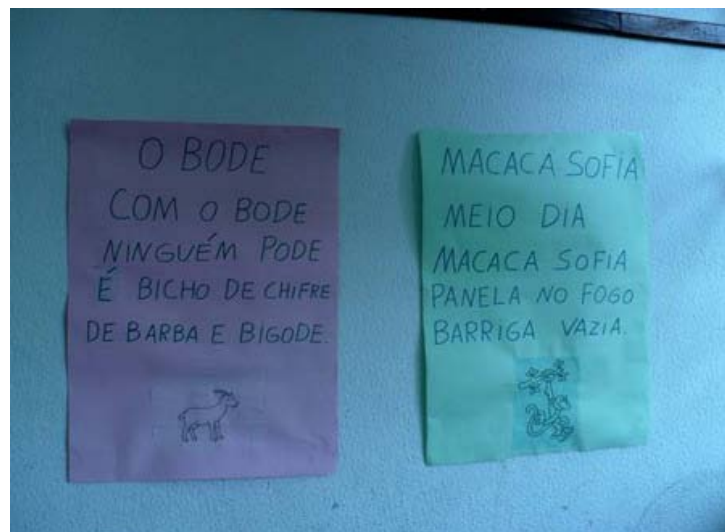 O BODE
COM O BODE
NINGUÉM PODE
É BICHO DE CHIFRE
DE BARBA E BIGODE.
MACACA SOFIA
MEIO DIA
MACACA SOFIA
PANELA NO FOGO
BARRIGA VAZIA.